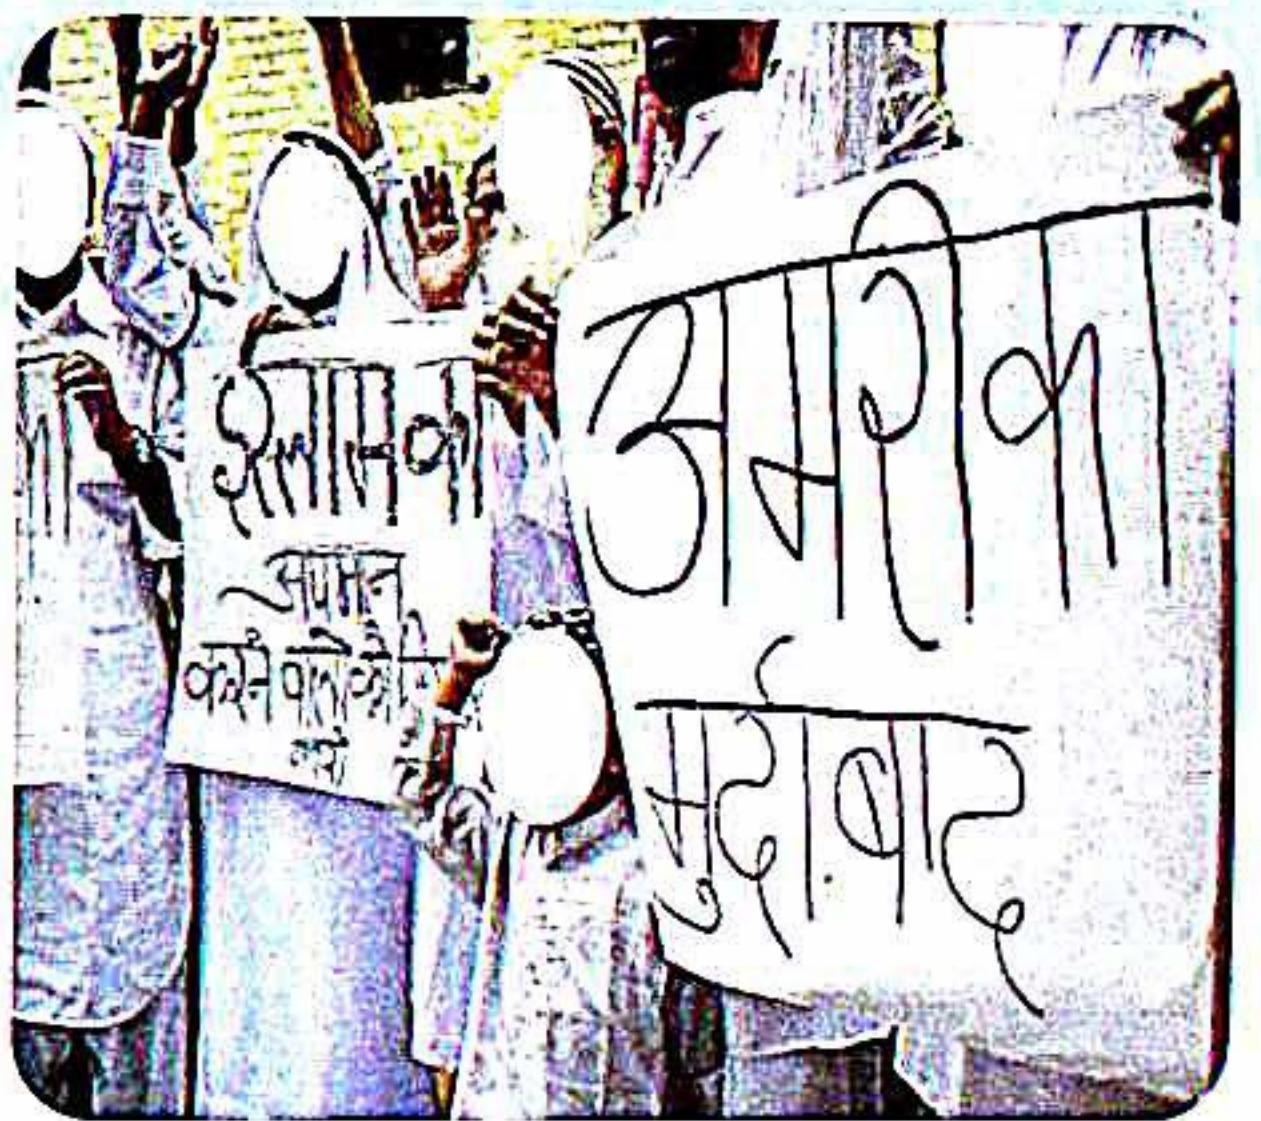 इस्लाम का
अपमान
करने वाले को
अमरिका
मुर्दाबाद